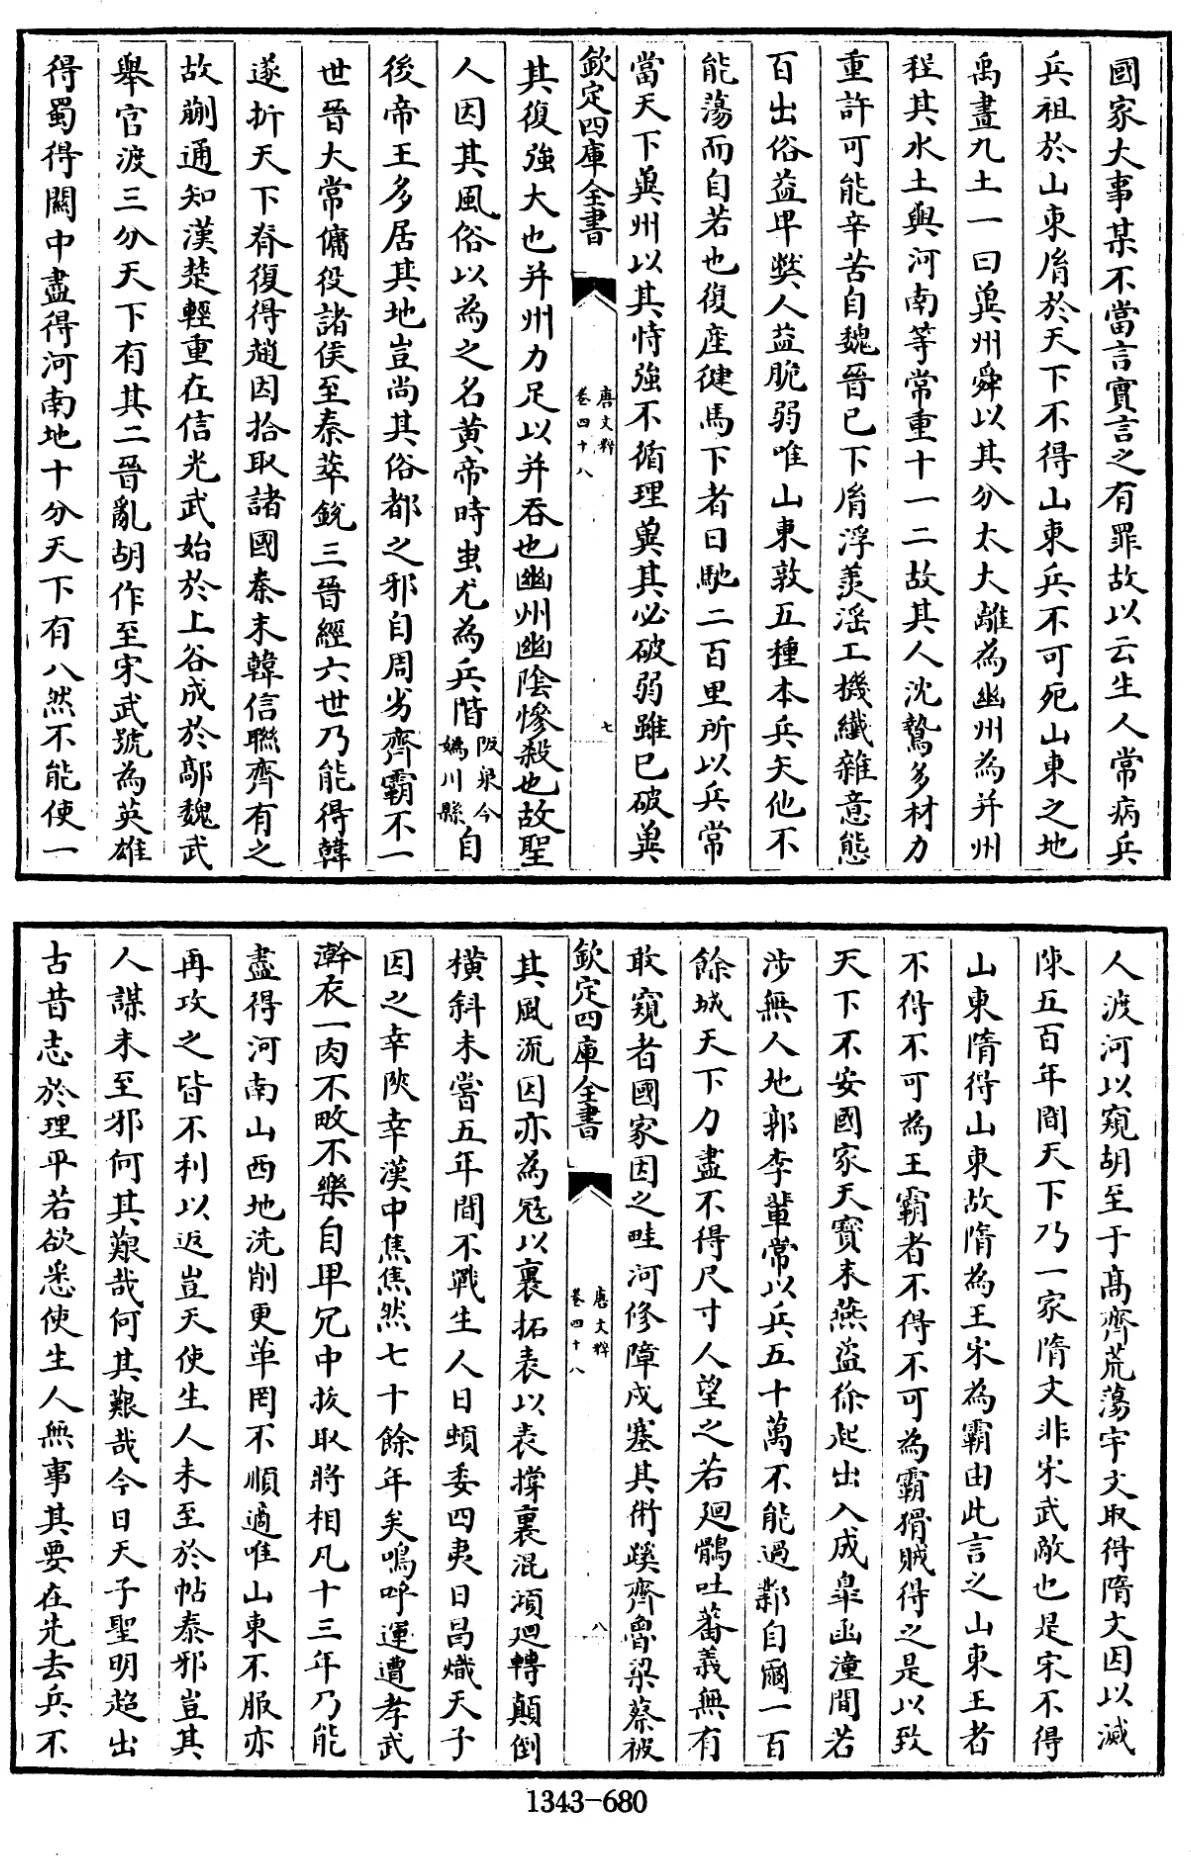 國家大事某不當言實言之有罪故以云生人常病兵
兵祖於山東胤於天下不得山東兵不可死山東之地
禹畫九土一曰兾州舜以其分太大離為幽州為并州
程其水土與河南等常重十一二故其人沈鷙多材力
重許可能辛苦自魏晉已下胤浮羨淫工機纖雜意態
百出俗益卑弊人益脆弱唯山東敦五種本兵矢他不
能蕩而自若也復產健馬下者日馳二百里所以兵常
當天下兾州以其恃強不循理兾其必破弱雖已破兾
欽定四庫全書
唐文粹
卷四十八
七
其復強大也并州力足以并吞也幽州幽陰慘殺也故聖
人因其風俗以為之名黄帝時蚩尤為兵階阪泉今媯川縣自
後帝王多居其地豈尚其俗都之邪自周劣齊霸不一
世晉大常傭役諸侯至秦萃銳三晉經六世乃能得韓
遂折天下脊復得趙因拾取諸國秦末韓信聯齊有之
故蒯通知漢楚輕重在信光武始於上谷成於鄗魏武
舉官渡三分天下有其二晉亂胡作至宋武號為英雄
得蜀得關中盡得河南地十分天下有八然不能使一
人渡河以窺胡至于髙齊荒蕩宇文取得隋文因以滅
陳五百年間天下乃一家隋文非宋武敵也是宋不得
山東隋得山東故隋為王宋為霸由此言之山東王者
不得不可為王霸者不得不可為霸猾賊得之是以致
天下不安國家天寶末燕盜徐起出入成臯函潼間若
涉無人地郭李輩常以兵五十萬不能過鄴自爾一百
餘城天下力盡不得尺寸人望之若廻鶻吐蕃義無有
敢窺者國家因之畦河修障戍塞其街蹊齊魯梁蔡被
欽定四庫全書
唐文粹
卷四十八
八
其風流因亦為冦以裏拓表以表撐裏混澒廻轉顛倒
橫斜未嘗五年間不戰生人日頓委四夷日昌熾天子
因之幸陜幸漢中焦焦然七十餘年矣嗚呼運遭孝武
澣衣一肉不畋不樂自卑冗中拔取將相凡十三年乃能
盡得河南山西地洗削更革罔不順適唯山東不服亦
再攻之皆不利以返豈天使生人未至於帖泰邪豈其
人謀未至邪何其艱哉何其艱哉今日天子聖明超出
古昔志於理平若欲悉使生人無事其要在先去兵不
1343-680